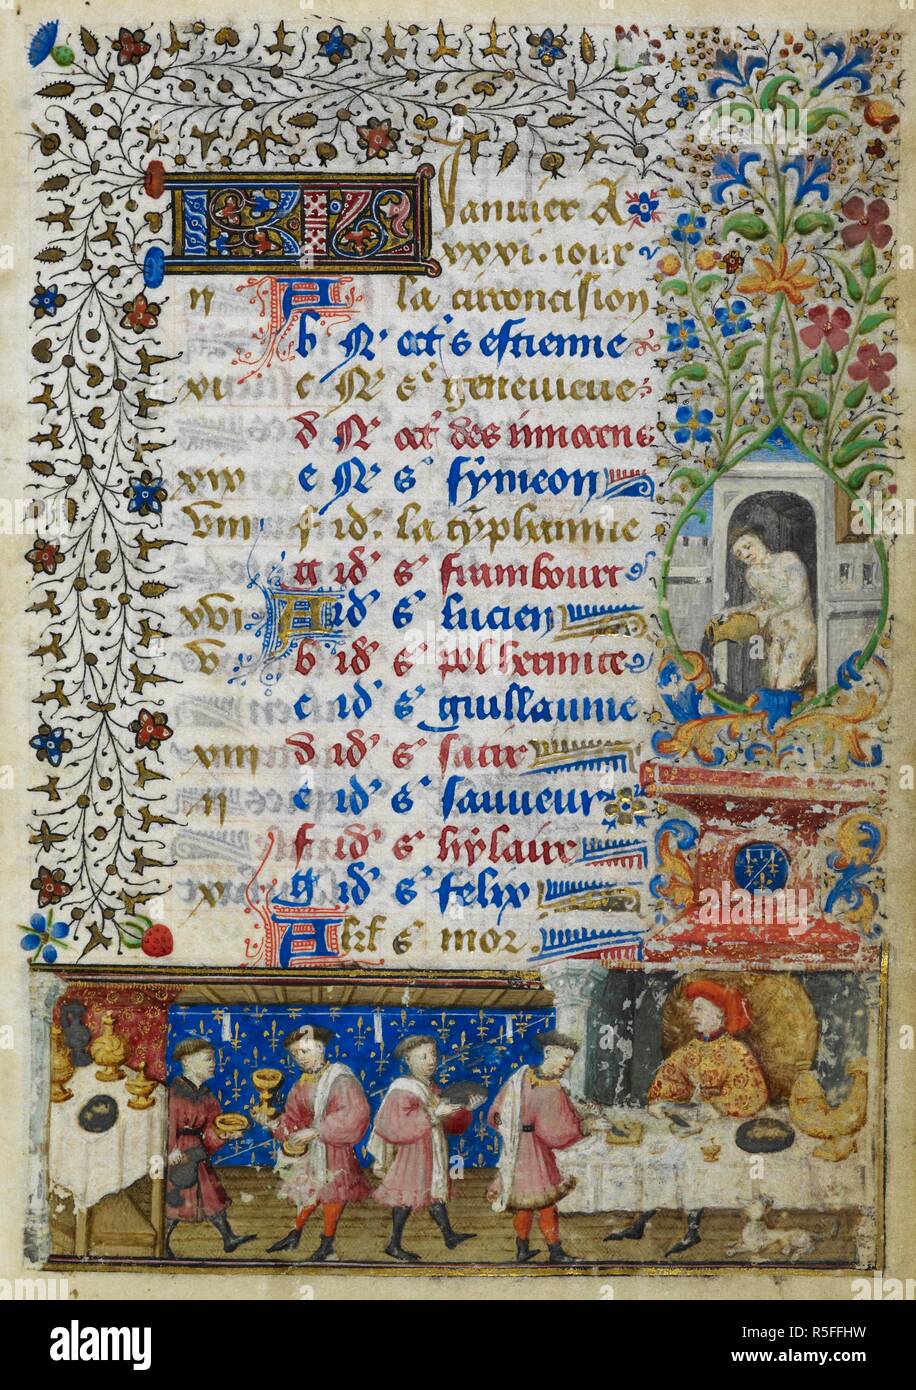 KL Januier A
xxxi. iour
A la circoncision
b N oct s estienne
xi c N se geneuieue
d N oct des innocens
xix e N s symeon
viii f id la typhainne
g id s frambourt
xvi A id s lucien
v b id s pol hermite
c id s guillaume
xiii d id s satir
ii e id s sauueur
f id s hylaire
x g id s felix
A kl s mor
alamy stock photo
R5FFHW
www.alamy.com